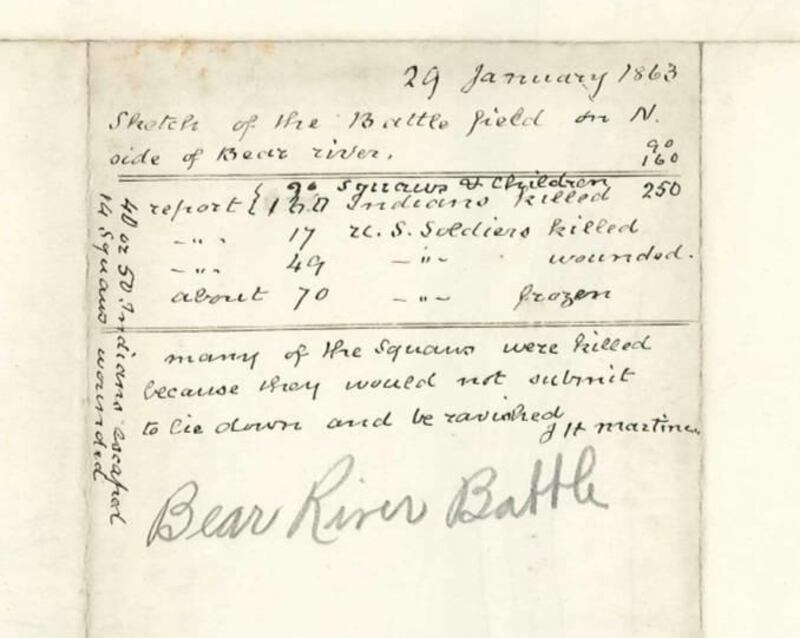 29 January 1863
Sketch of the Battle field on N.
side of Bear river.
90
160
250
90 Squaws & Children
report { 160 Indians killed
-"- 17 U.S. Soldiers killed
-"- 49 -"- wounded.
about 70 -"- frozen
40 or 50 Indians escaped
14 Squaws wounded
many of the Squaws were killed
because they would not submit
to lie down and be ravished
J H Martineau
Bear River Battle